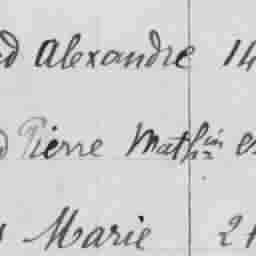 d Alexandre 14
Pierre Mathin
Marie 2